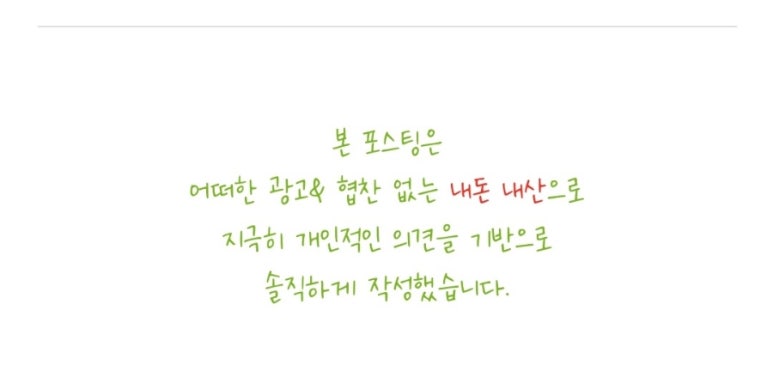 본 포스팅은
어떠한 광고& 협찬 없는 내돈 내산으로
지극히 개인적인 의견을 기반으로
솔직하게 작성했습니다.